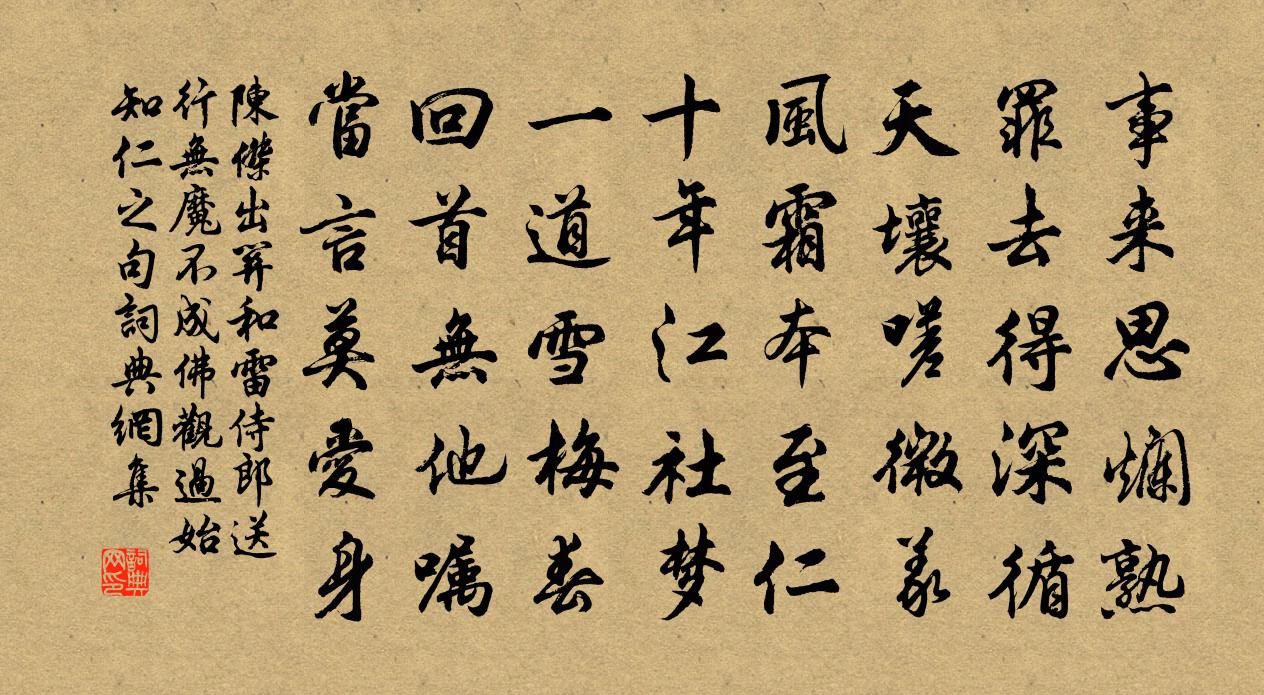 事来思爛熟
罪去得深循
天壤嗟微義
風霜本至仁
十年江社梦
一道雪梅春
回首無他嘱
當言莫愛身
陳傑出筭和雷侍郎送
行無魔不成佛觀過始
知仁之句詞典網集
詞典
网印